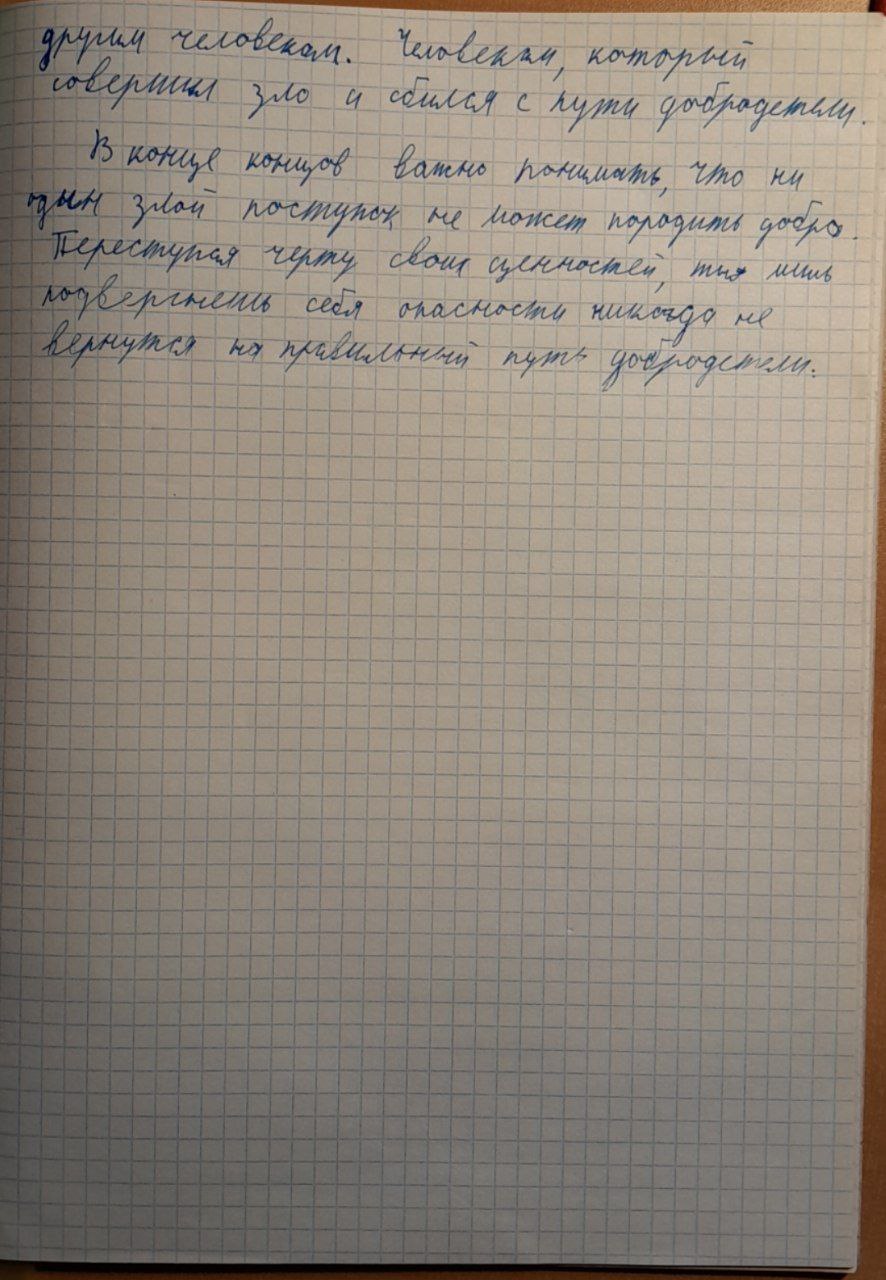 другим человеком. Человеком, который
совершил зло и сбился с пути добродетели.
В конце концов важно понимать, что ни
один злой поступок не может породить добро.
Переступая черту своих ценностей, ты лишь
подвергнешь себя опасности никогда не
вернутся на правильный путь добродетели.